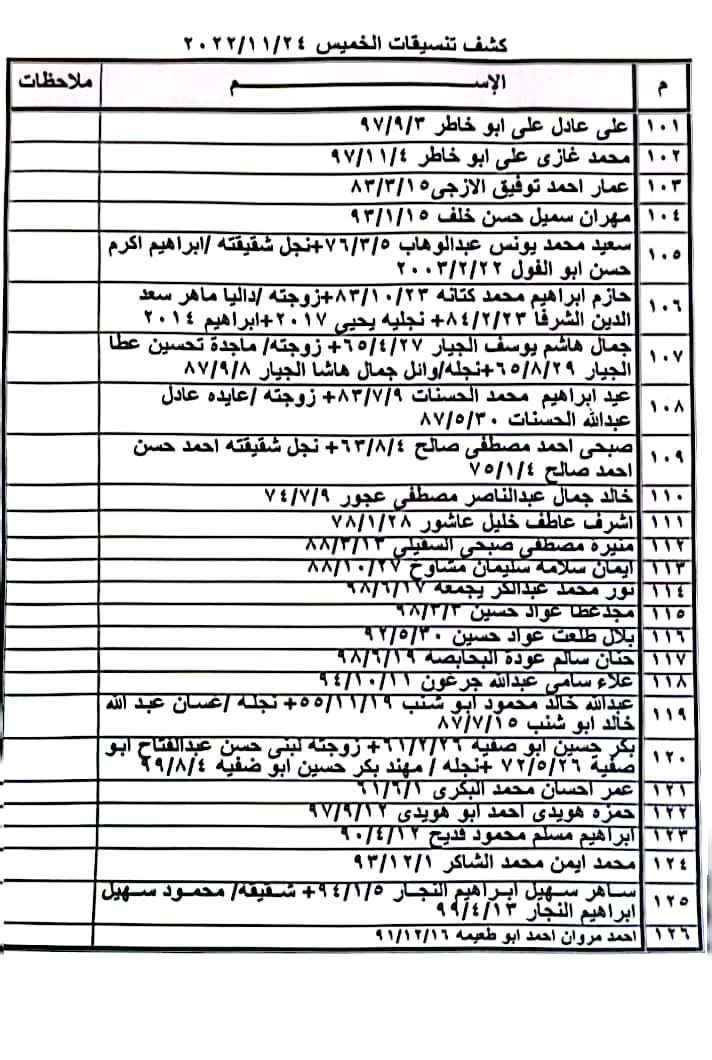 كشف تنسيقات الخميس ٢٠٢٢/١١/٢٤
م الإســــــــم ملاحظات
١٠١ على عادل على ابو خاطر ٩٧/٩/٣
١٠٢ محمد غازى على ابو خاطر ٩٧/١١/٤
١٠٣ عمار احمد توفيق الازجى٨٣/٣/١٥
١٠٤ مهران سميل حسن خلف ٩٣/١/١٥
١٠٥ سعيد محمد يونس عبدالوهاب ٧٦/٣/٥+نجل شقيقته /ابراهيم اكرم
حسن ابو الفول ٢٠٠٣/٢/٢٢
١٠٦ حازم ابراهيم محمد كتانه ٨٣/١٠/٢٣+زوجته /داليا ماهر سعد
الدين الشرفا ٨٤/٢/٢٣+ نجليه يحيى ٢٠١٧+ابراهيم ٢٠١٤
١٠٧ جمال هاشم يوسف الجيار ٦٥/٤/٢٧+ زوجته/ ماجدة تحسين عطا
الجيار ٦٥/٨/٢٩+نجله/وائل جمال هاشا الجيار ٨٧/٩/٨
١٠٨ عيد ابراهيم محمد الحسنات ٨٣/٧/٩+ زوجته /عايده عادل
عبدالله الحسنات ٨٧/٥/٣٠
١٠٩ صبحى احمد مصطفى صالح ٦٣/٨/٤+ نجل شقيقته احمد حسن
احمد صالح ٧٥/١/٤
١١٠ خالد جمال عبدالناصر مصطفى عجور ٧٤/٧/٩
١١١ اشرف عاطف خليل عاشور ٧٨/١/٢٨
١١٢ منيرة مصطفى صبحى السقيلى ٨٨/٣/١٣
١١٣ ايمان سلامه سليمان مشاوخ ٨٨/١٠/٢٧
١١٤ نور محمد عبدالكر يجمعه ٩٨/٦/١٧
١١٥ مجدعطا عواد حسين ٩٨/٣/٣
١١٦ بلال طلعت عواد حسين ٩٢/٥/٣٠
١١٧ حنان سالم عودة البحابصه ٩٨/٦/١٩
١١٨ علاء سامى عبدالله جرغون ٩٤/١٠/١١
١١٩ عبدالله خالد محمود ابو شنب ٥٥/١١/١٩+ نجله /غسان عبد الله
خالد ابو شنب ٨٧/٧/١٥
١٢٠ بكر حسين ابو صفيه ٦١/٢/٢٦+ زوجته لبنى حسن عبدالفتاح ابو
صفية ٧٢/٥/٢٦ +نجله / مهند بكر حسين ابو ضفيه ٩٩/٨/٤
١٢١ عمر احسان محمد البكرى ٦١/٦/١
١٢٢ حمزه هويدى احمد ابو هويدى ٩٧/٩/١٢
١٢٣ ابراهيم مسلم محمود قديح ٩٠/٤/١٢
١٢٤ محمد ايمن محمد الشاكر ٩٣/١٢/١
١٢٥ ساهر سهيل ابراهيم النجار ٩٤/١/٥+ شقيقه/ محمود سهيل
ابراهيم النجار ٩٩/٤/١٣
١٢٦ احمد مروان احمد ابو طعيمه ٩١/١٢/١٦